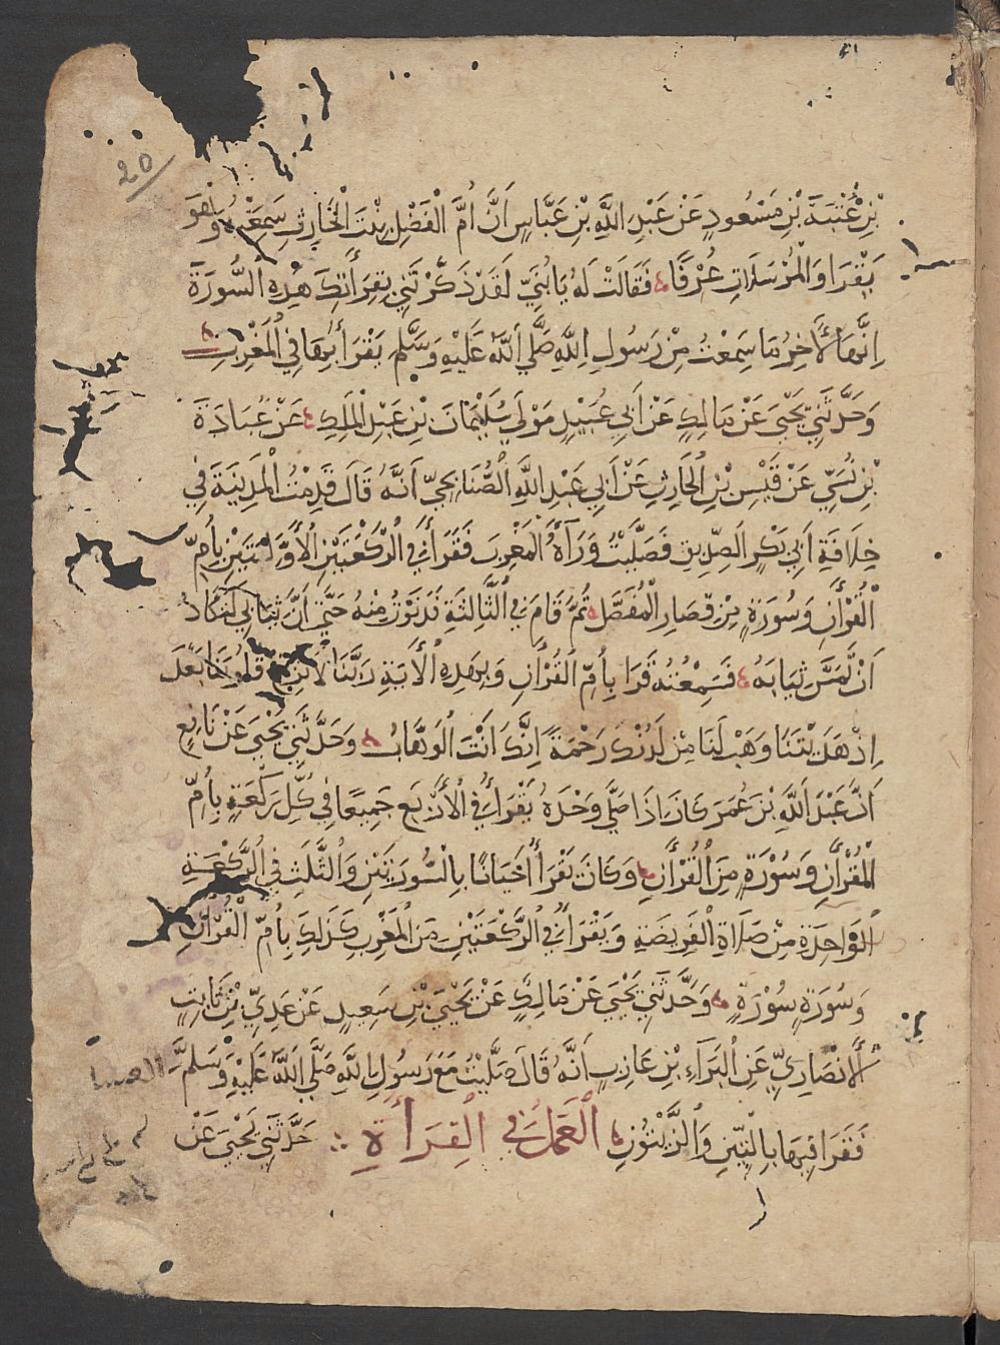 20
بْنِ عُتْبَةَ بْنِ مَسْعُودٍ عَنْ عَبْدِ اللَّهِ بْنِ عَبَّاسٍ اَنَّ اُمَّ الْفَضْلِ بِنْتَ الْحَارِثِ سَمِعَتْهُ وَهُوَ
يَقْرَا وَالْمُرْسَلَاتِ عُرْفًا فَقَالَتْ لَهُ يَا بُنَيَّ لَقَدْ ذَكَّرْتَنِي بِقِرَأَتِكَ هٰذِهِ السُّورَةَ
اِنَّهَا لَأَخِرُ مَا سَمِعْتُ مِنْ رَسُولِ اللَّهِ صَلَّي اللَّهُ عَلَيْهِ وَسَلَّمَ يَقْرَأُ بِهَا فِي الْمَغْرِبِ
وَحَدَّثَنِي يَحْيَى عَنْ مَالِكٍ عَنْ اَبِي عُبَيْدٍ مَوْلَي سُلَيْمَانَ بْنِ عَبْدِ الْمَلِكِ عَنْ عُبَادَةَ
بْنِ نُسَيٍّ عَنْ قَيْسِ بْنِ الْحَارِثِ عَنْ اَبِي عَبْدِ اللَّهِ الصُّنَابِحِيِّ اَنَّهُ قَالَ قَدِمْتُ الْمَدِينَةَ فِي
خِلَافَةِ اَبِي بَكْرٍ الصِّدِيقِ فَصَلَّيْتُ وَرَآءَهُ الْمَغْرِبَ فَقَرَأَ فِي الرَّكْعَتَيْنِ الْأُوَّلَتَيْنِ بِأُمِّ
الْقُرْأَنِ وَسُورَةٍ مِنْ قِصَارِ الْمُفَصَّلِ ثُمَّ قَامَ فِي الثَّالِثَةِ فَدَنَوْتُ مِنْهُ حَتَّى اَنَّ ثِيَابِي لَتَكَادُ
اَنْ تَمَسَّ ثِيَابَهُ فَسَمِعْتُهُ قَرَا بِأُمِّ الْقُرْأَنِ وَبِهٰذِهِ الْأَيَةِ رَبَّنَا لَا تُزِغْ قُلُوبَنَا بَعْدَ
اِذْ هَدَيْتَنَا وَهَبْ لَنَا مِنْ لَدُنْكَ رَحْمَةً اِنَّكَ اَنْتَ الْوَهَّابُ وَحَدَّثَنِي يَحْيَى عَنْ نَافِعٍ
اَنَّ عَبْدَ اللَّهِ بْنَ عُمَرَ كَانَ اِذَا صَلَّي وَحْدَهُ يَقْرَأُ فِي الْأَرْبَعِ جَمِيعًا فِي كُلِّ رَكْعَةٍ بِأُمِّ
الْقُرْأَنِ وَسُوْرَةٍ مِنَ الْقُرْأَنِ وَكَانَ يَقْرَأُ اَحْيَانًا بِالسُّورَتَيْنِ وَالثَّلَثِ فِي الرَّكْعَةِ
الْوَاحِدَةِ مِنْ صَلَاةِ الْفَرِيضَةِ وَيَقْرَأُ فِي الرَّكْعَتَيْنِ مِنَ الْمَغْرِبِ كَذَلِكَ بِأُمِّ الْقُرْأَنِ
وَسُورَةٍ سُوْرَةٍ وَحَدَّثَنِي يَحْيَى عَنْ مَالِكٍ عَنْ يَحْيَى بْنِ سَعِيدٍ عَنْ عَدِيِّ بْنِ ثَابِتٍ
الْأَنْصَارِيِّ عَنِ الْبَرَآءِ بْنِ عَازِبٍ اَنَّهُ قَالَ صَلَّيْتُ مَعَ رَسُولِ اللَّهِ صَلَّي اللَّهُ عَلَيْهِ وَسَلَّمَ
فَقَرَا فِيهَا بِالتِّينِ وَالزَّيْتُونِ الْعَمَلُ فِي الْقِرَأَةِ حَدَّثَنِي يَحْيَى عَنْ